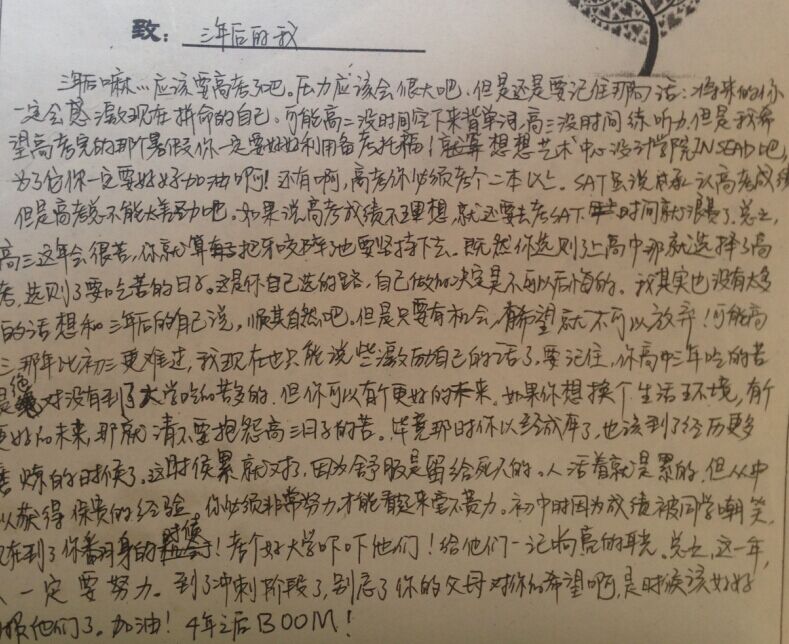 致：三年后的我
三年后嘛…应该要高考了吧。压力应该会很大吧，但是还是要记住那句话：将来的你
一定会感激现在拼命的自己。可能高二没时间空下来背单词，高三没时间练听力，但是我希
望高考完的那个暑假你一定要好好利用备考托福！想想艺术中心设计学院INSEAD吧，
为了估你一定要好好加油啊！还有啊，高考你必须考个二本以上。SAT虽说承认高考成绩
但是高考总不能太差劲吧。如果说高考成绩不理想，就还要去考SAT，时间就浪费了。总之，
高三这年会很苦，你就算把牙咬碎也要坚持下去。既然你选则了上高中那就选择了高
考，选则了要吃苦的日子。这是你自己选的路，自己做的决定是不可以后悔的。我其实也没有太多
的话想和三年后的自己说，顺其自然吧。但是只要有机会，有希望就不可以放弃！可能高
三那年比初三更难过，我现在也只能说些激励自己的话了。要记住，你高中三年吃的苦
是绝对没有到了大学吃的苦多的，但你可以有个更好的未来。如果你想换个生活环境，有个
更好的未来，那就请不要抱怨高三日子的苦。毕竟那时你以经成年了，也该到了经历更多
磨炼的时候了。这时侯累就对了，因为舒服是留给死人的。人活着就是累的，但从中
以获得保贵的经验。你必须非常努力，才能看起来毫不费力。初中时因为成绩被同学嘲笑，
现在到了你翻身的时候了！考个好大学吓吓他们！给他们一记响亮的耳光。总之，这一年，
一定要努力。到了冲刺阶段了，别忘了你的父母对你的希望啊，是时候该好好
报他们了。加油！4年之后BOOM！